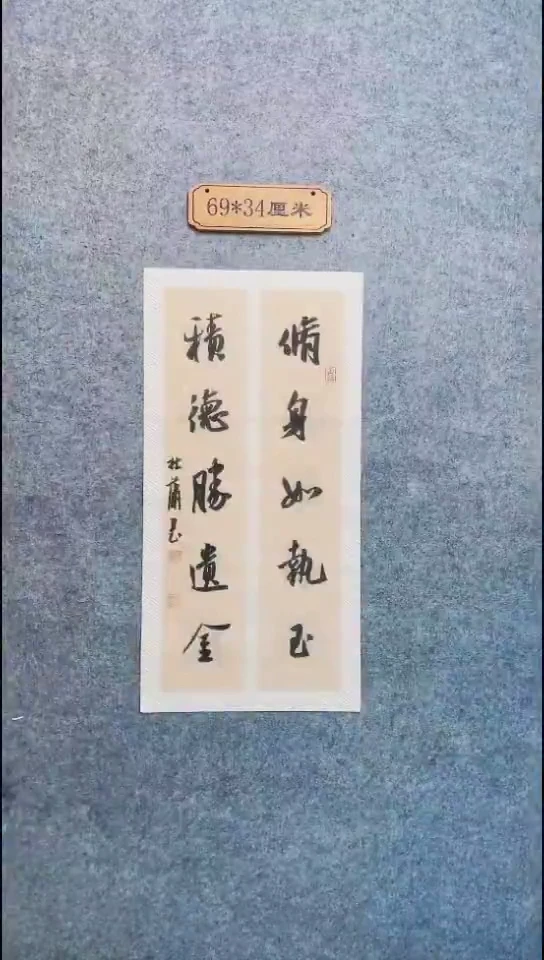 69*34厘米
脩身如執玉
積德勝遺金